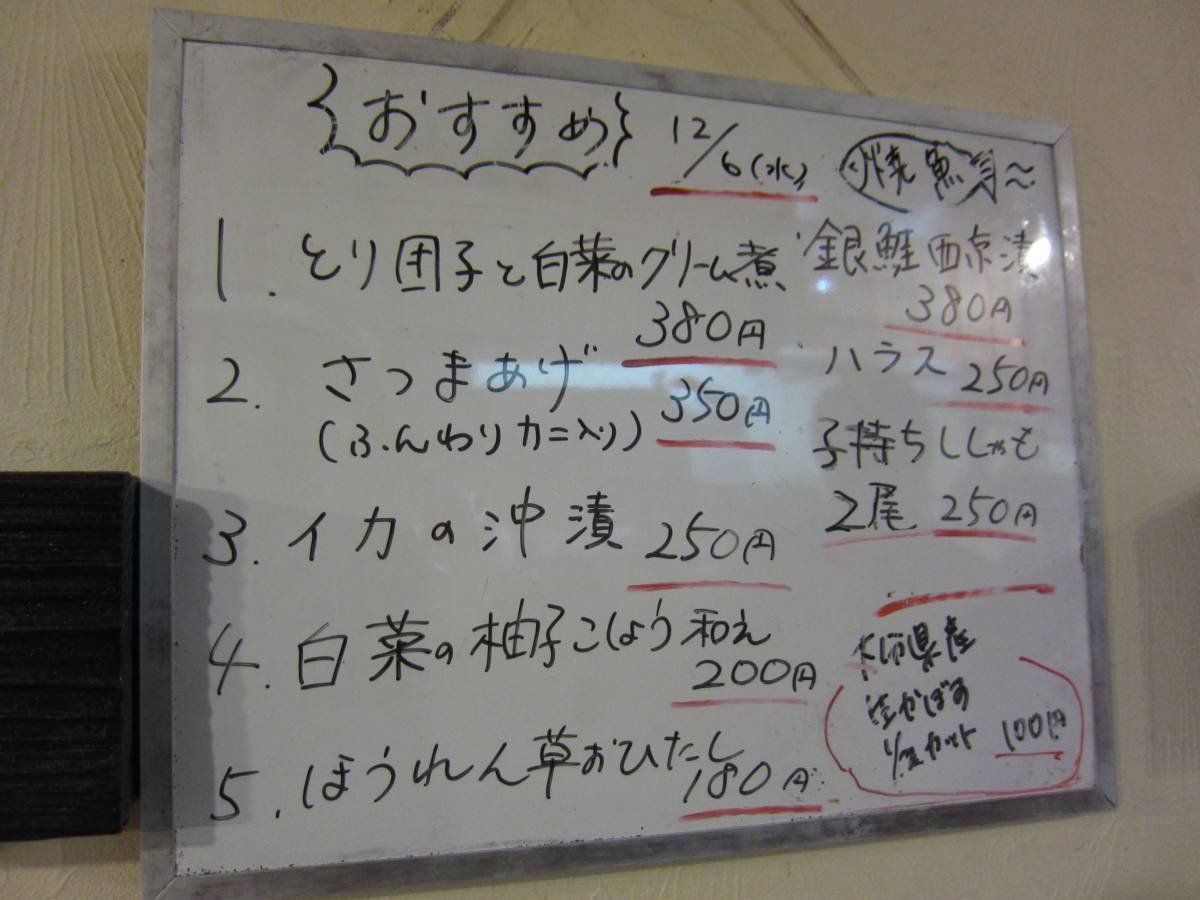 おすすめ 12/6(水)
1. とり団子と白菜のクリーム煮
380円
2. さつまあげ 350円
(ふんわりカニ入り)
3. イカの沖漬 250円
4. 白菜の柚子こしょう和え
200円
5. ほうれん草おひたし
180円
焼魚
銀鮭西京漬
380円
ハラス 250円
子持ちししゃも
2尾 250円
県産
生かぼす
カット 100円